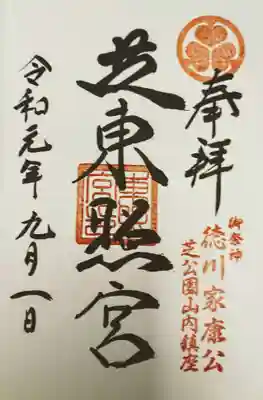 奉拝
御祭神
徳川家康公
芝公園山内鎮座
芝東照宮
令和元年九月一日